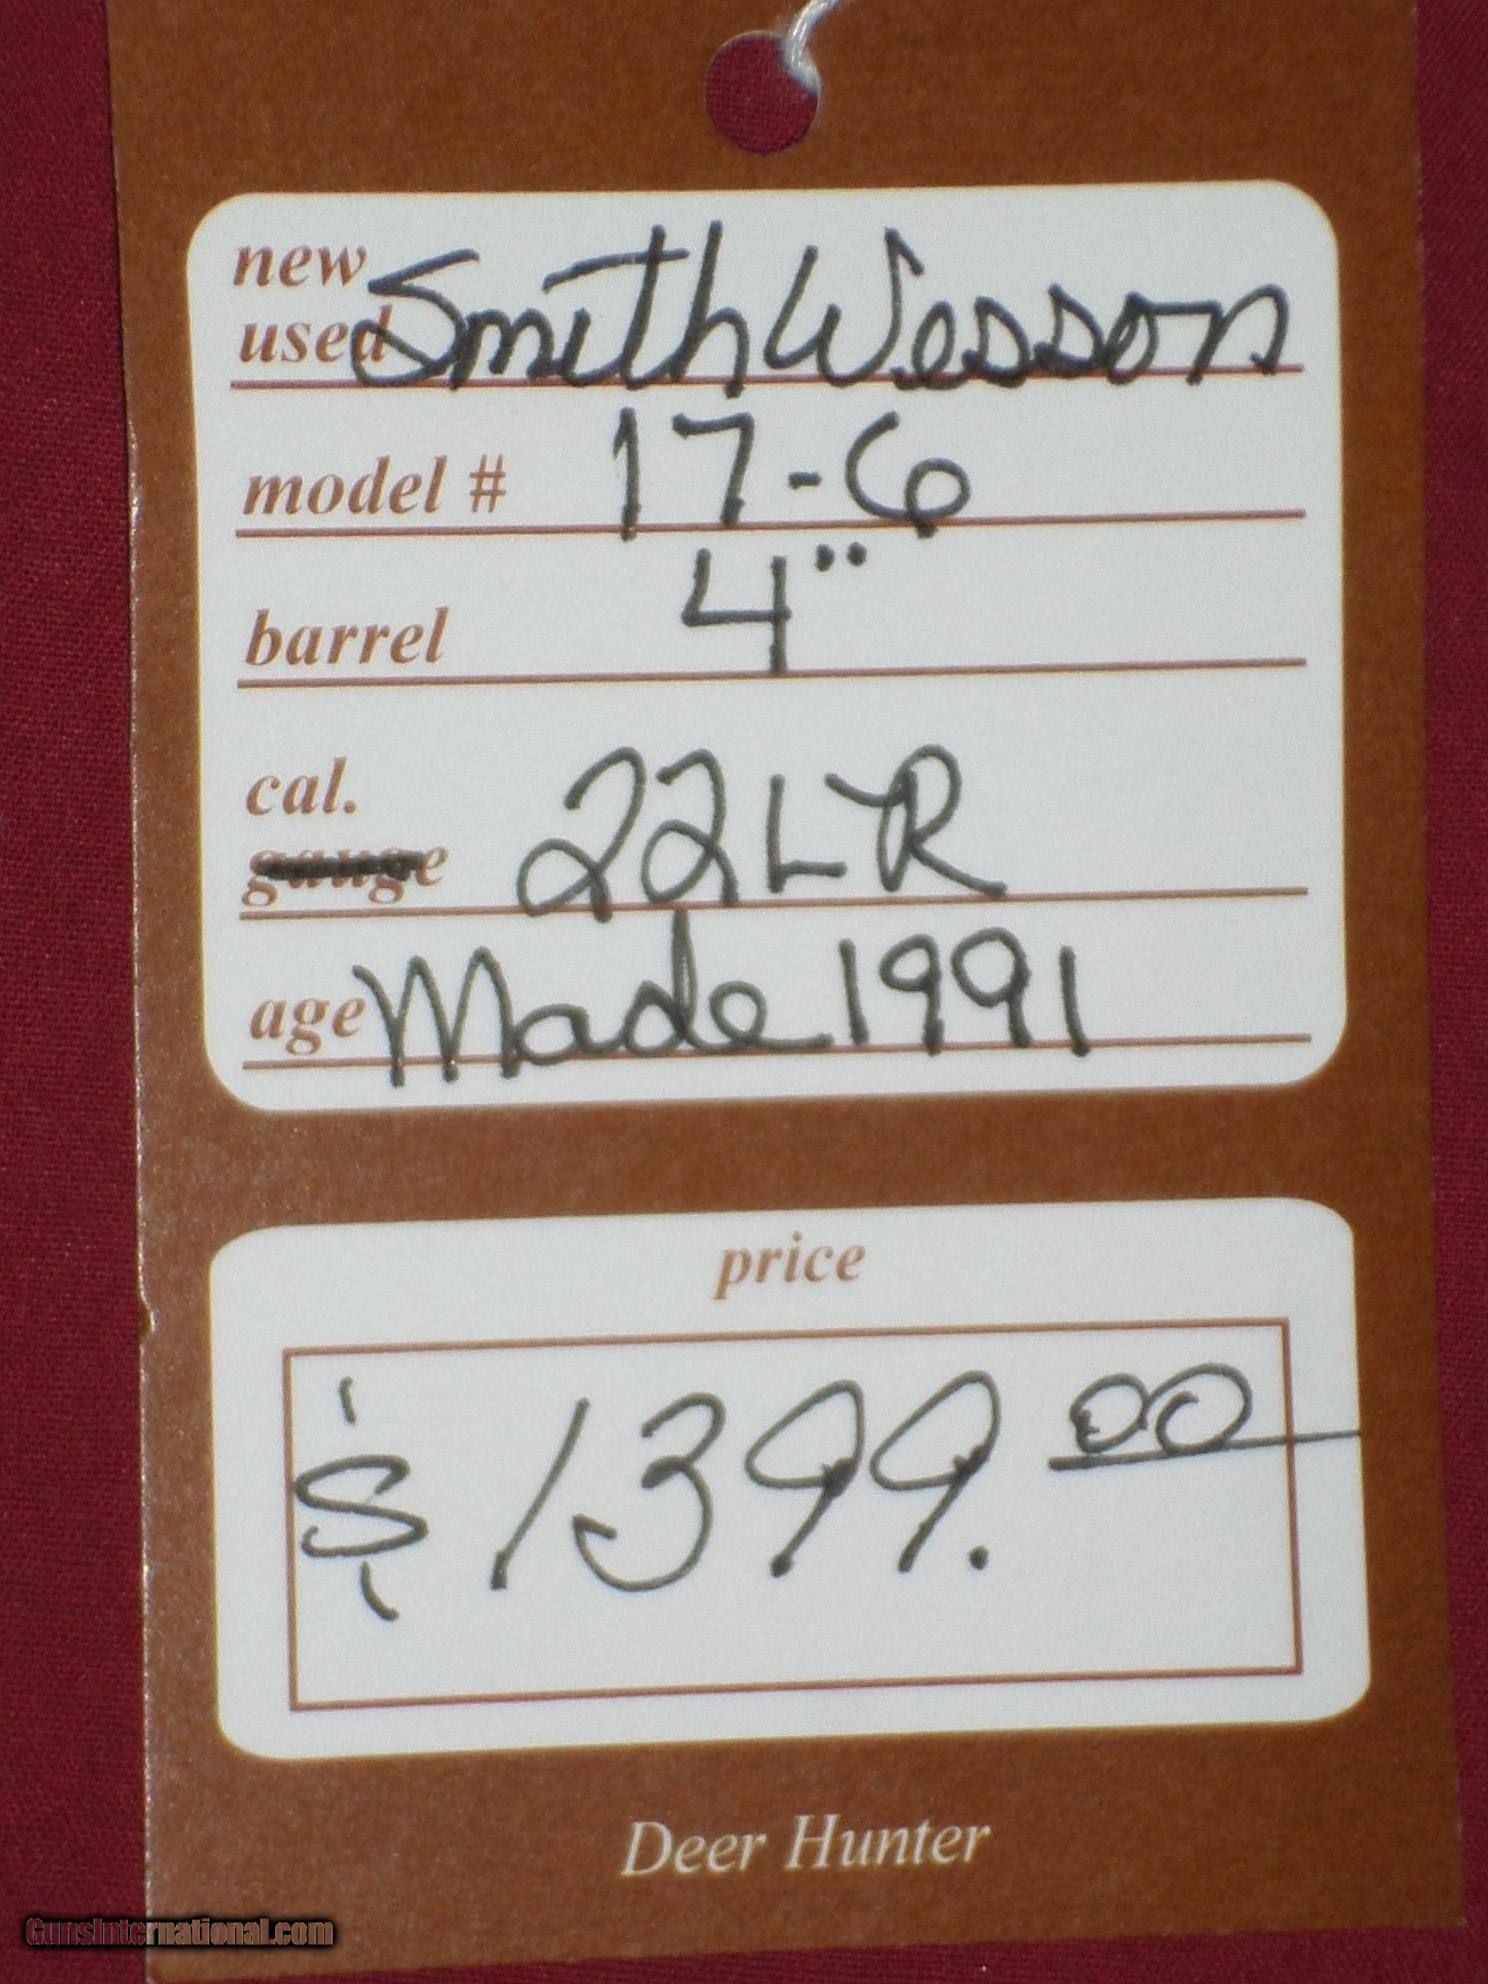 new
used Smith Wesson
model # 17-6
barrel 4"
cal.
gauge 22LR
age Made 1991
price
$ 1399.00
Deer Hunter
GunsInternational.com